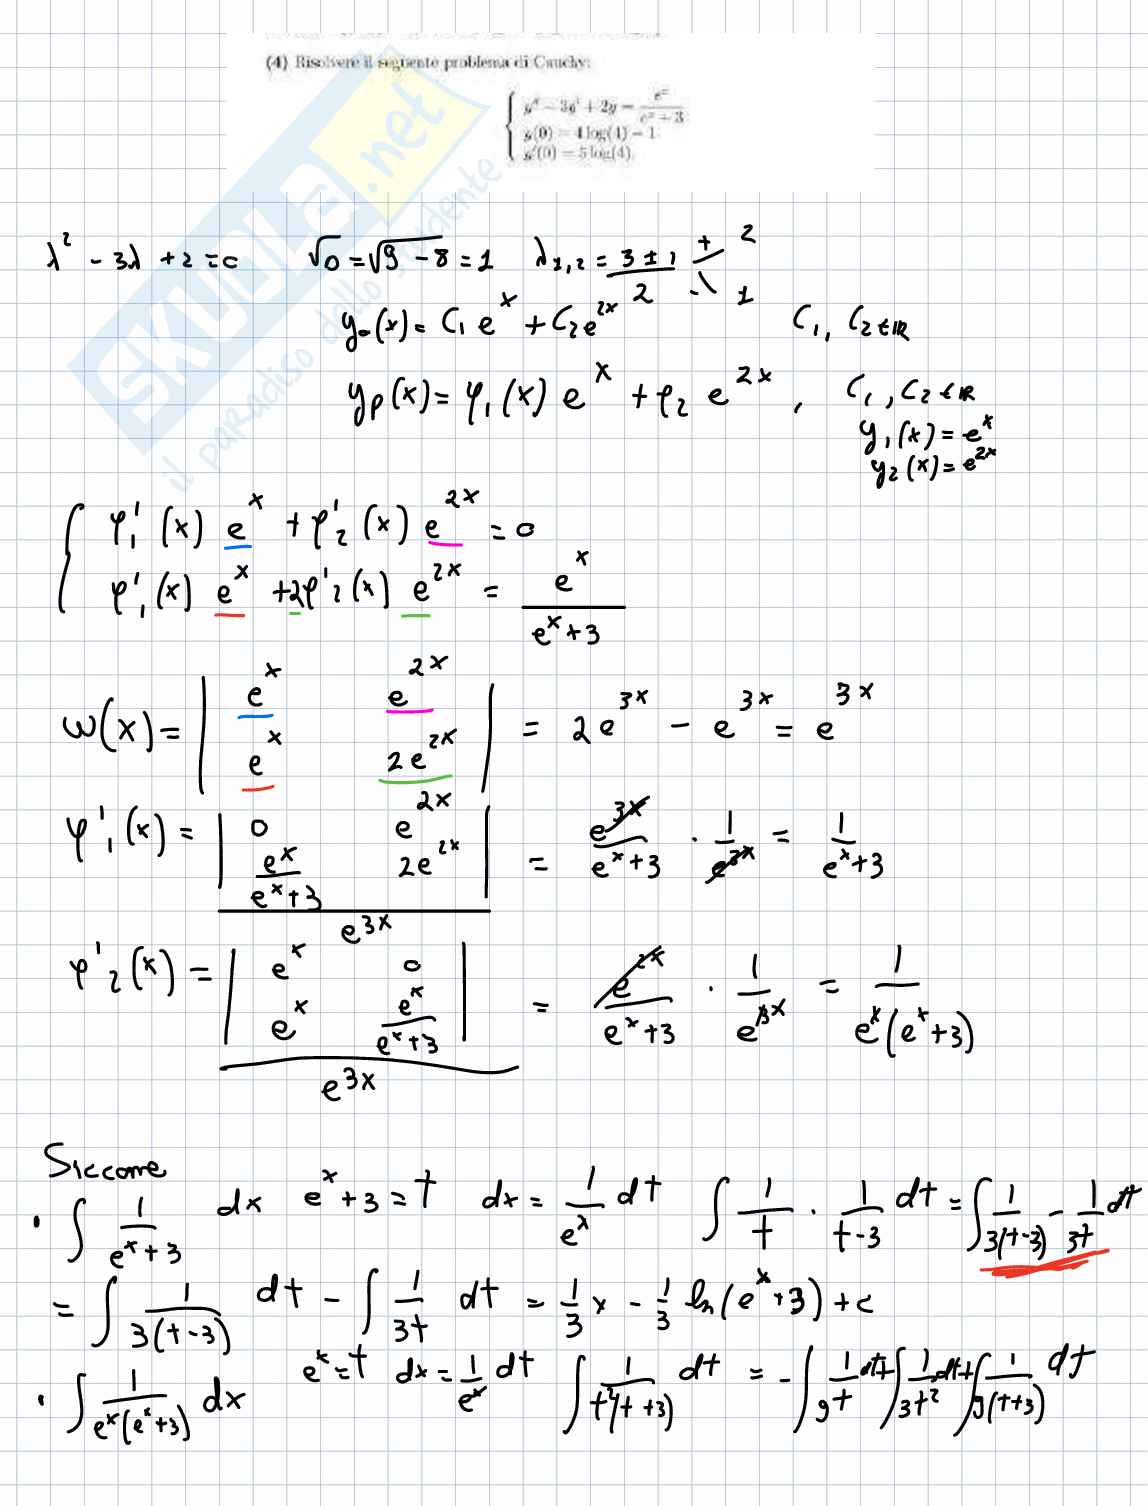 (4) Risolvere il seguente problema di Cauchy:
y'' − 3y' + 2y = e^x / (e^x + 3)
y(0) = 4 log(4) − 1
y'(0) = 5 log(4)
SKUOLA.net
il paradiso dello studente
λ² − 3λ + 2 = 0 √0 = √9 − 8 = 1 λ1,2 = (3 ± 1)/2 + 2
− 1
y₀(x) = C₁ e^x + C₂ e^2x C₁, C₂ ∈ ℝ
yp(x) = φ₁(x) e^x + φ₂ e^2x , C₁, C₂ ∈ ℝ
y₁(x) = e^x
y₂(x) = e^2x
φ'₁(x) e^x + φ'₂(x) e^2x = 0
φ'₁(x) e^x + 2φ'₂(x) e^2x = e^x / (e^x + 3)
ω(x) = | e^x e^2x |
| e^x 2e^2x | = 2e^3x − e^3x = e^3x
φ'₁(x) = | 0 e^2x |
| e^x/(e^x+3) 2e^2x | / e^3x = e^3x/(e^x+3) · 1/e^3x = 1/(e^x+3)
φ'₂(x) = | e^x 0 |
| e^x e^x/(e^x+3) | / e^3x = e^2x/(e^x+3) · 1/e^3x = 1/(e^x(e^x+3))
Siccome
• ∫ 1/(e^x+3) dx e^x+3 = t dx = 1/e^x dt ∫ 1/t · 1/(t−3) dt = ∫ 1/(3(t−3)) − 1/(3t) dt
= ∫ 1/(3(t−3)) dt − ∫ 1/(3t) dt = 1/3 x − 1/3 ln(e^x+3) + c
• ∫ 1/(e^x(e^x+3)) dx e^x = t dx = 1/e^x dt ∫ 1/(t²(t+3)) dt = −∫ 1/(9t) dt + ∫ 1/(3t²) dt + ∫ 1/(9(t+3)) dt